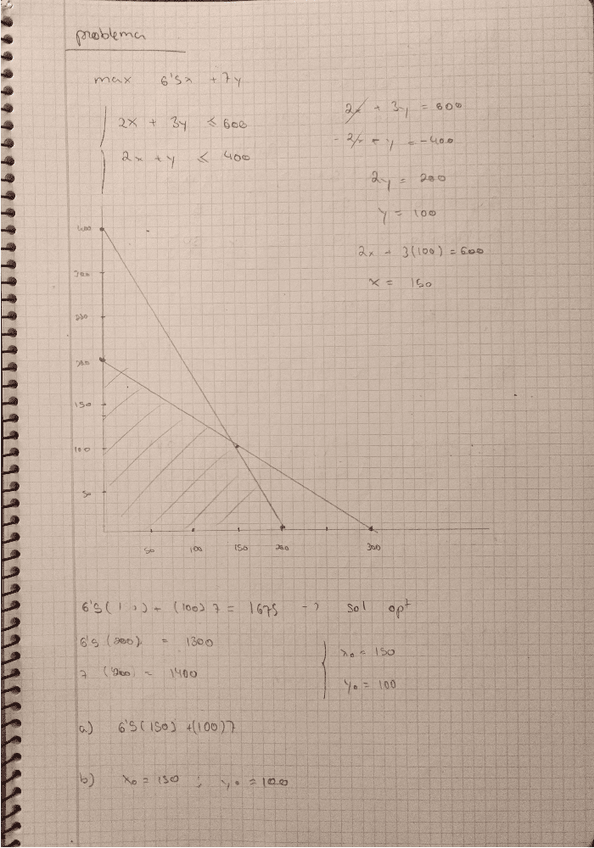 problema
max 6'5x + 7y
2x + 3y ≤ 600
2x + y ≤ 400
2x + 3y = 600
- 2x + y = -400
2y = 200
y = 100
2x + 3(100) = 600
x = 150
400
200
150
100
50
50 100 150 200 300
6'5( ) + (100)7 = 1675 -> sol opt
6'5 (200) = 1300
7 (200) = 1400
x₀ = 150
y₀ = 100
a) 6'5(150) + (100)7
b) x₀ = 150 ; y₀ = 100